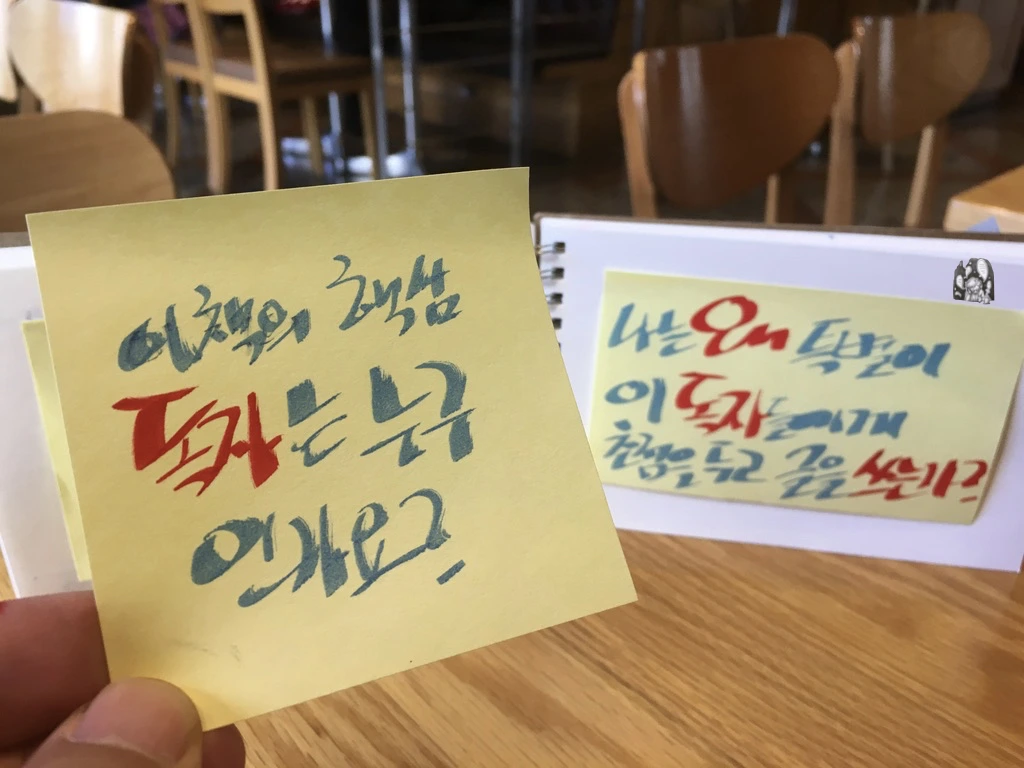 이 책의 핵심
독자는 누구
인가요?
나는 왜 특별히
이 독자들에게
초점을 두고 글을 쓰는가?